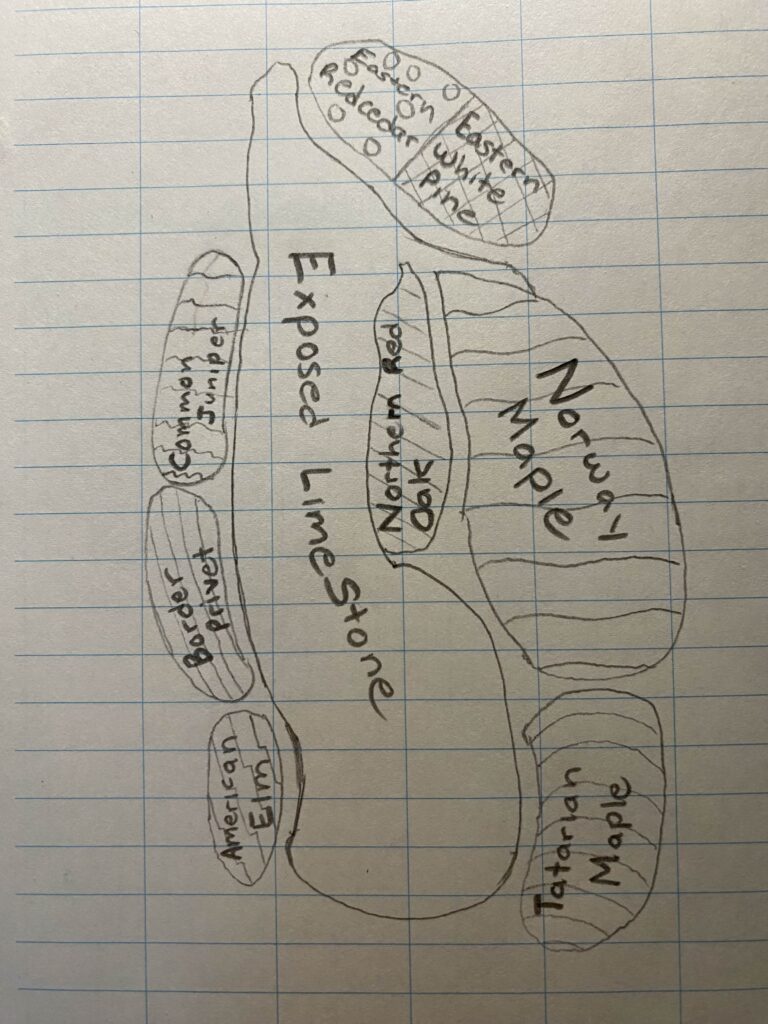 Eastern
Redcedar
Eastern
White
Pine
Exposed LimeStone
Common
Juniper
Northern Red
Oak
Norway
Maple
Border
privet
American
Elm
Tatarian
Maple